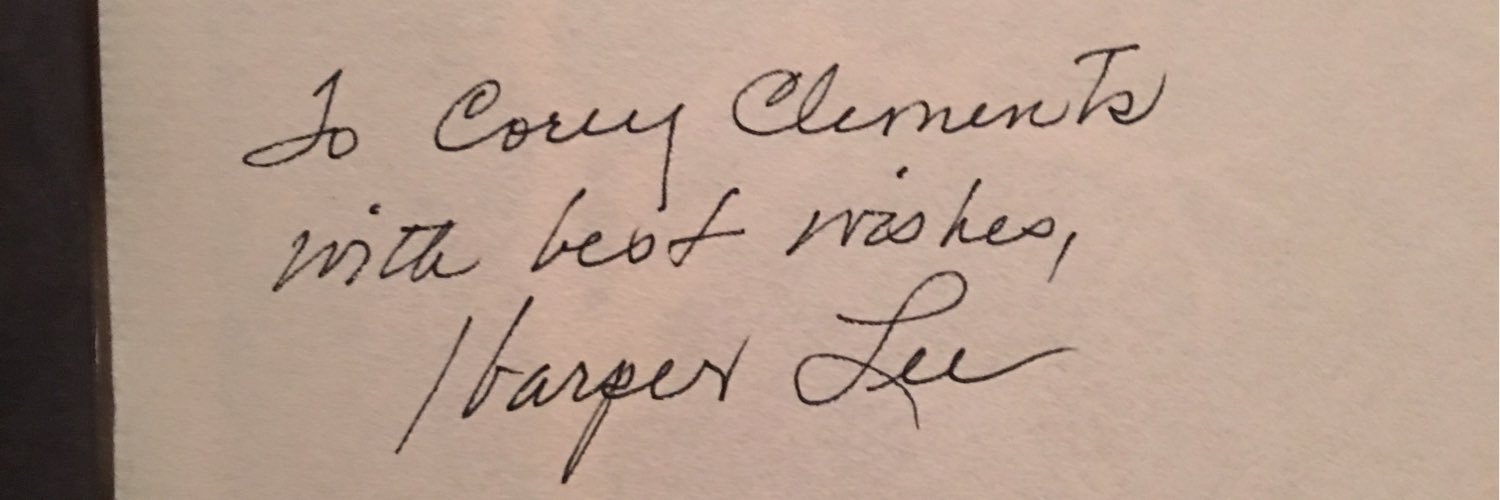 To Corey Clements
with best wishes,
Harper Lee